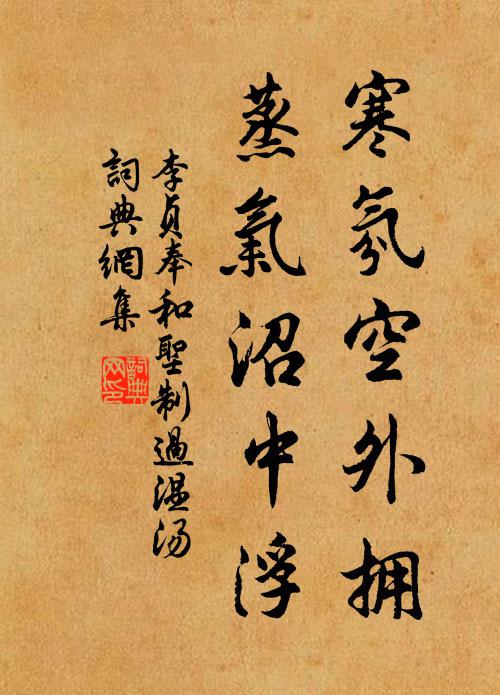 寒氛空外拥
蒸氣沼中浮
李貞奉和聖制過温汤
詞典網集
詞典网印